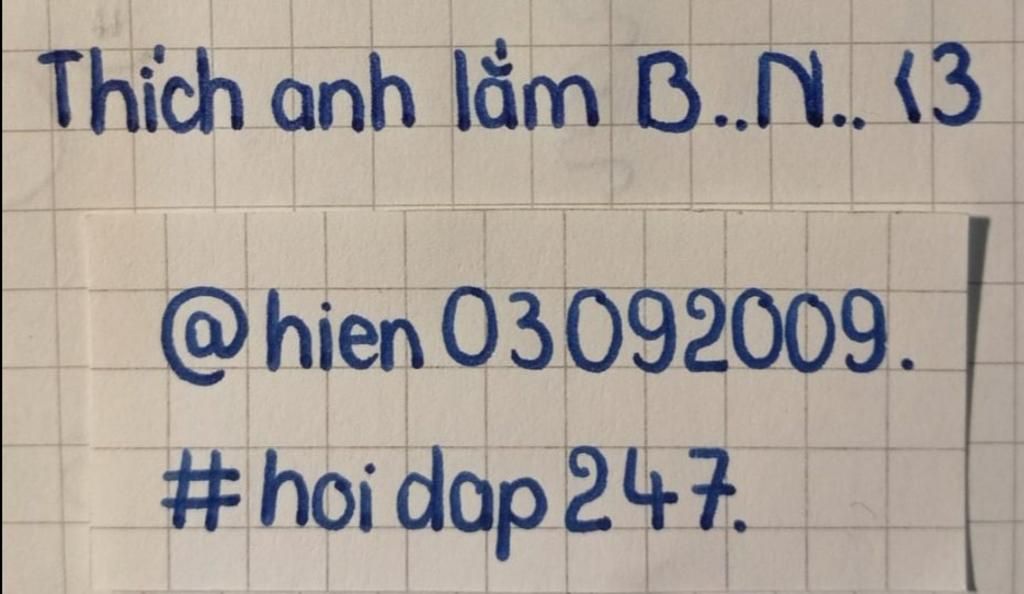 Thích anh lắm B..N.. <3
@hien03092009.
#hoidap247.